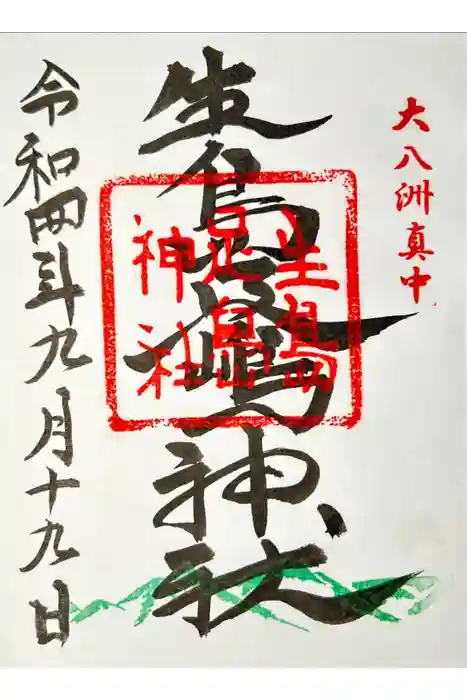 大八洲真中
生島足島神社
生島
足島
神社
令和四年九月十九日